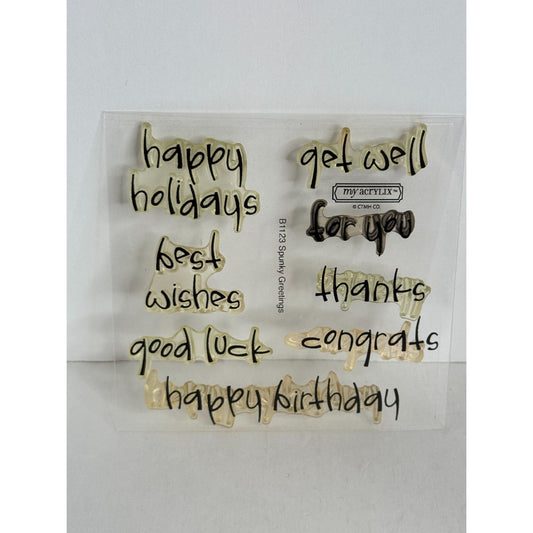 happy
holidays
best
wishes
good luck
happy birthday
B1123 Spunky Greetings
get well
my acrylix™
© CTMH CO.
for you
thanks
congrats